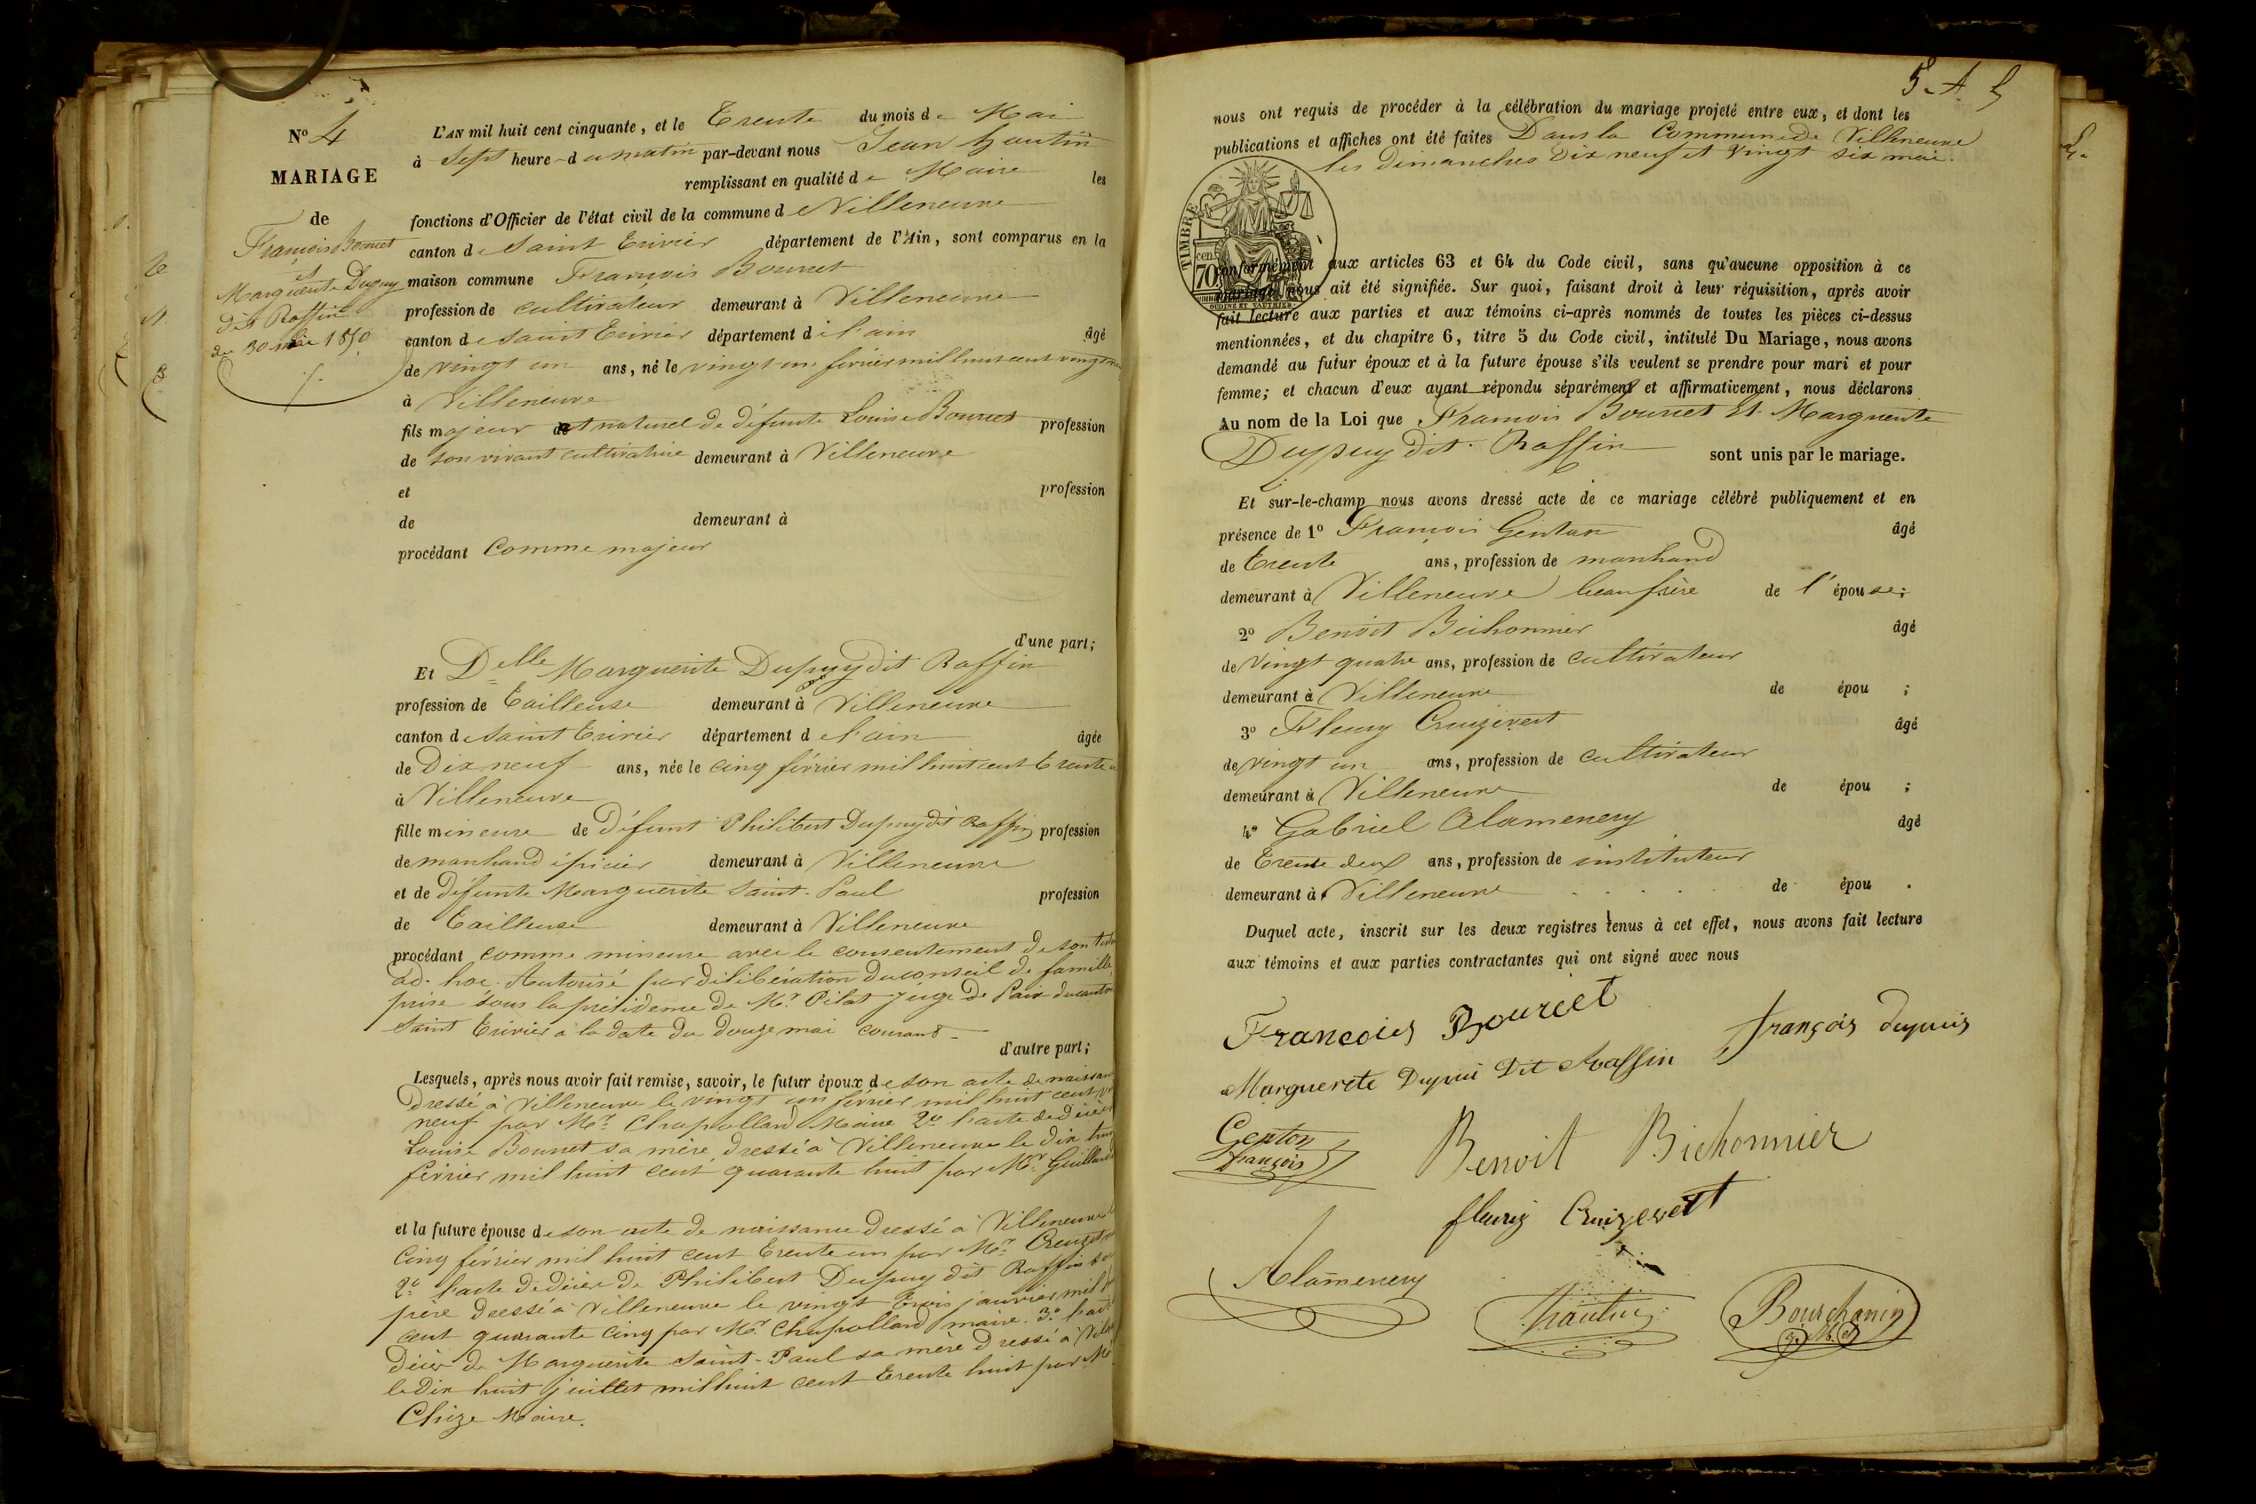 N° 4
MARIAGE
de
François Bourcet
et
Marguerite Dupuy
dit Raffin
du 30 mai 1850
L'AN mil huit cent cinquante, et le Trente du mois de Mai
à Sept heure du matin par-devant nous Jean hautin
remplissant en qualité de Maire les
fonctions d'Officier de l'état civil de la commune de Villeneuve
canton de Saint Trivier département de l'Ain, sont comparus en la
maison commune François Bourcet
profession de cultivateur demeurant à Villeneuve
canton de Saint Trivier département de l'ain âgé
de vingt un ans, né le vingt un février mil huit cent vingt
à Villeneuve
fils majeur et naturel de défunte Louise Bourcet profession
de son vivant cultivatrice demeurant à Villeneuve
et profession
de demeurant à
procédant Comme majeur
d'une part;
Et Delle Marguerite Dupuy dit Raffin
profession de Tailleuse demeurant à Villeneuve
canton de Saint Trivier département de l'ain âgée
de Dix neuf ans, née le cinq février mil huit cent Trente
à Villeneuve
fille mineure de Défunt Philibert Dupuy dit Raffin profession
de marchand épicier demeurant à Villeneuve
et de défunte Marguerite Saint-Paul profession
de Tailleuse demeurant à Villeneuve
procédant comme mineure avec le consentement de son
ad-hoc Autorisé par délibération du conseil de famille
prise sous la présidence de Mr Pilat juge de Paix du canton
Saint Trivier à la date du douze mai courant
d'autre part;
Lesquels, après nous avoir fait remise, savoir, le futur époux de son acte de
dressé à Villeneuve le vingt un février mil huit cent
neuf par Mr Chapolland Maire 2° l'acte de décès
Louise Bourcet sa mère dressé à Villeneuve le dix huit
février mil huit cent quarante huit par Mr
et la future épouse de son acte de naissance dressé à Villeneuve
Cinq février mil huit cent Trente un par Mr
2° l'acte de décès de Philibert Dupuy dit Raffin
père dressé à Villeneuve le vingt Trois janvier mil
cent quarante cinq par Mr Chapolland maire. 3° l'acte
décès de Marguerite Saint-Paul sa mère dressé à
le dix huit juillet mil huit cent Trente huit par Mr
Chize Maire.
5
nous ont requis de procéder à la célébration du mariage projeté entre eux, et dont les
publications et affiches ont été faites Dans la Commune de Villeneuve
les dimanches Dix neuf et vingt six mai.
TIMBRE
70 cen
OUDINÉ ET VAUTHIER
conformément aux articles 63 et 64 du Code civil, sans qu'aucune opposition à ce
mariage nous ait été signifiée. Sur quoi, faisant droit à leur réquisition, après avoir
fait lecture aux parties et aux témoins ci-après nommés de toutes les pièces ci-dessus
mentionnées, et du chapitre 6, titre 5 du Code civil, intitulé Du Mariage, nous avons
demandé au futur époux et à la future épouse s'ils veulent se prendre pour mari et pour
femme; et chacun d'eux ayant répondu séparément et affirmativement, nous déclarons
Au nom de la Loi que François Bourcet Et Marguerite
Dupuy dit Raffin sont unis par le mariage.
Et sur-le-champ nous avons dressé acte de ce mariage célébré publiquement et en
présence de 1° François Genton âgé
de Trente ans, profession de marchand
demeurant à Villeneuve beaufrère de l'épouse;
2° Benoit Bichonnier âgé
de vingt quatre ans, profession de cultivateur
demeurant à Villeneuve de épou ;
3° Fleury Cruizevert âgé
de vingt un ans, profession de cultivateur
demeurant à Villeneuve de épou ;
4° Gabriel Alamenery âgé
de Trente deux ans, profession de instituteur
demeurant à Villeneuve de épou .
Duquel acte, inscrit sur les deux registres tenus à cet effet, nous avons fait lecture
aux témoins et aux parties contractantes qui ont signé avec nous
Francois Bourcet
françois dupuis
Marguerete Dupui Dit Raffin
Genton
françois
Benoit Bichonnier
fleury Cruizevert
Alamenery
hautin
Bourchanin